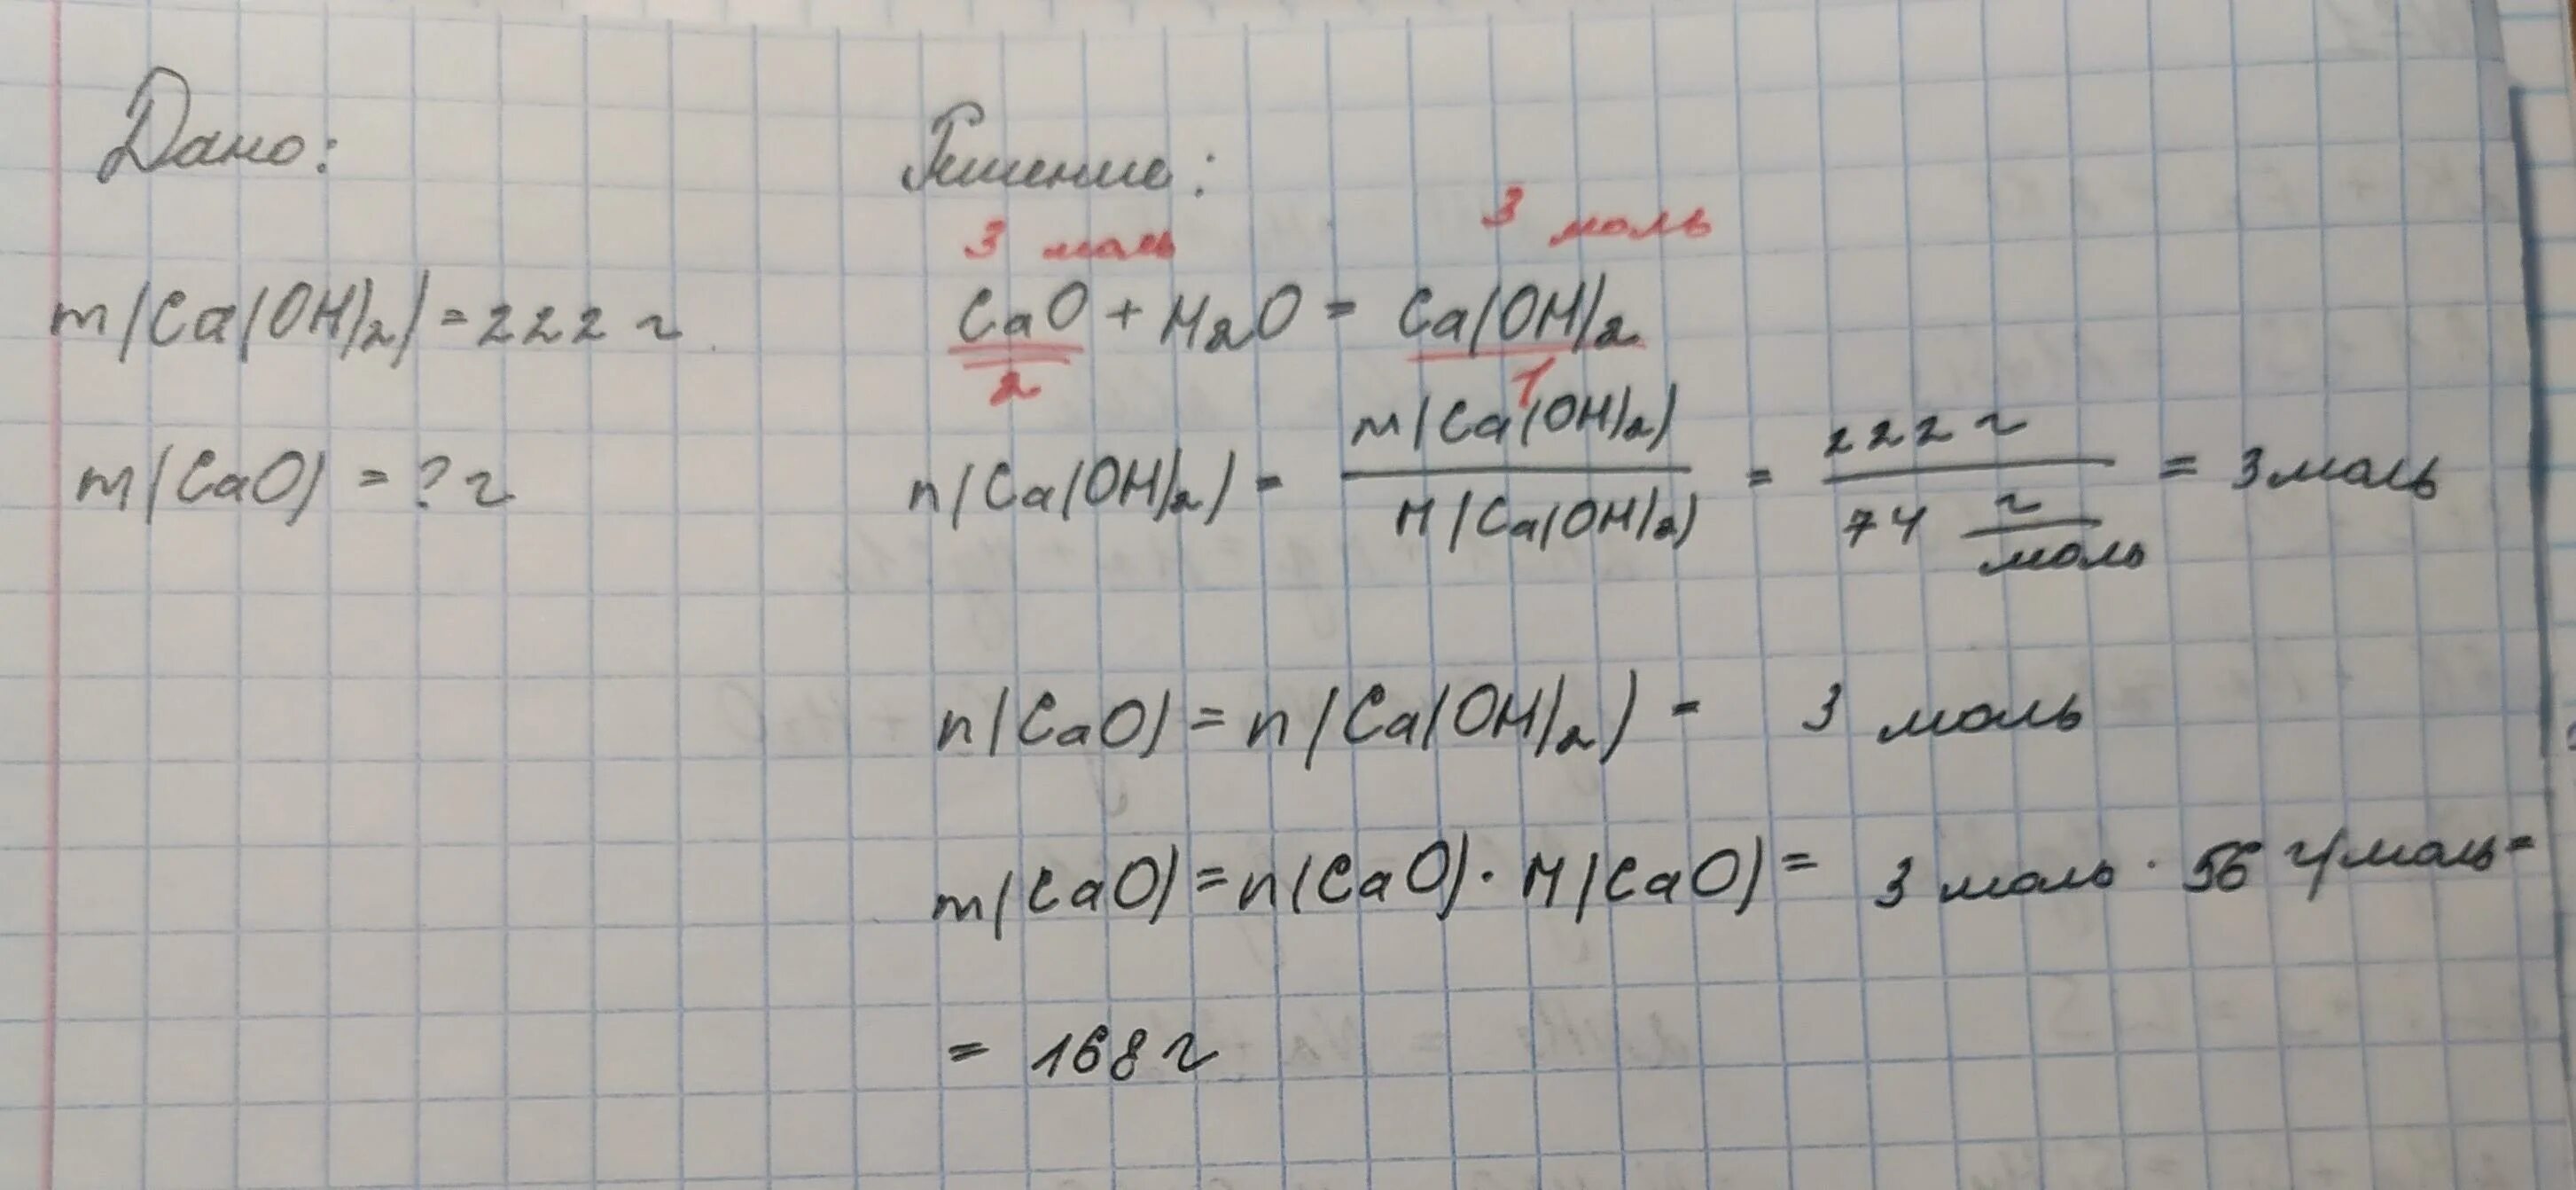 Дано:
m(Ca(OH)2) = 222 г
m(CaO) = ? г
Решение:
3 моль 3 моль
CaO + H2O = Ca(OH)2
2 1
n(Ca(OH)2) = m(Ca(OH)2) / M(Ca(OH)2) = 222 г / 74 г/моль = 3 моль
n(CaO) = n(Ca(OH)2) = 3 моль
m(CaO) = n(CaO) · M(CaO) = 3 моль · 56 г/моль =
= 168 г